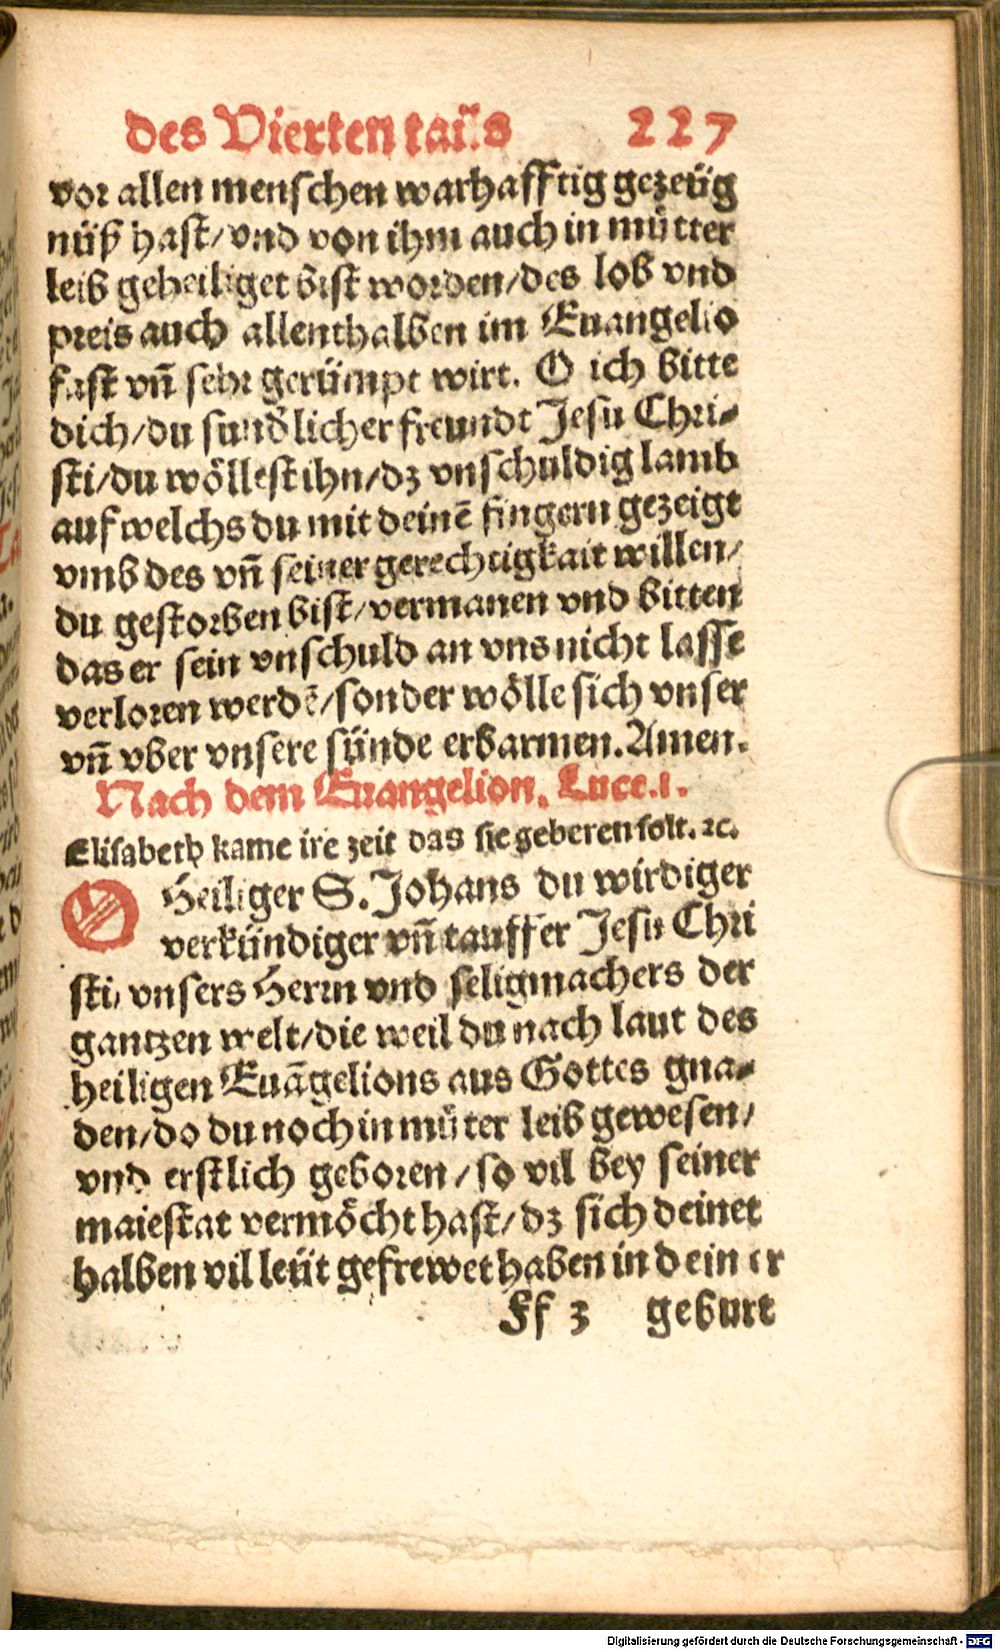 des Vierten tails 227
vor allen menschen warhafftig gezeüg
nüß hast/vnd von ihm auch in můtter
leib geheiliget bist worden/des lob vnd
preis auch allenthalben im Euangelio
fast vñ sehr gerümpt wirt. O ich bitte
dich/du sundlicher freundt Jesu Chri-
sti/du wöllest ihn/dz vnschuldig lamb
auf welchs du mit deinē fingern gezeigt
vmb des vñ seiner gerechtigkait willen/
du gestorben bist/vermanen vnd bitten
das er sein vnschuld an vns nicht lasse
verloren werdē/sonder wölle sich vnser
vñ vber vnsere sünde erbarmen. Amen.
Nach dem Euangelion. Luce.1.
Elisabeth kame ire zeit das sie geberen solt. ꝛc.
O Heiliger S. Johans du wirdiger
verkündiger vñ tauffer Jesu Chri
sti, vnsers Herrn vnd seligmachers der
gantzen welt/die weil du nach laut des
heiligen Euāgelions aus Gottes gna-
den/do du noch in můter leib gewesen/
vnd erstlich geboren/so vil bey seiner
maiestat vermöcht hast/dz sich deinet
halben vil leüt gefrewet haben in deiner
Ff 3 geburt
Digitalisierung gefördert durch die Deutsche Forschungsgemeinschaft - DFG